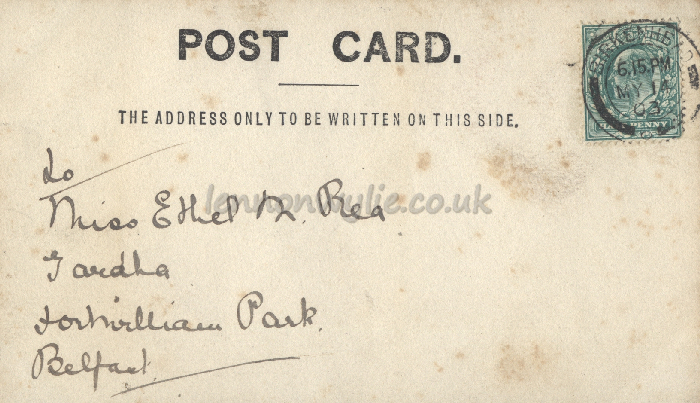 POST CARD.
BIRKENHEAD
5.15 PM
MY 14
03
PENNY
THE ADDRESS ONLY TO BE WRITTEN ON THIS SIDE.
To
Miss Ethel M. Rea
lennonwylie.co.uk
Gardha
Fortwilliam Park.
Belfast